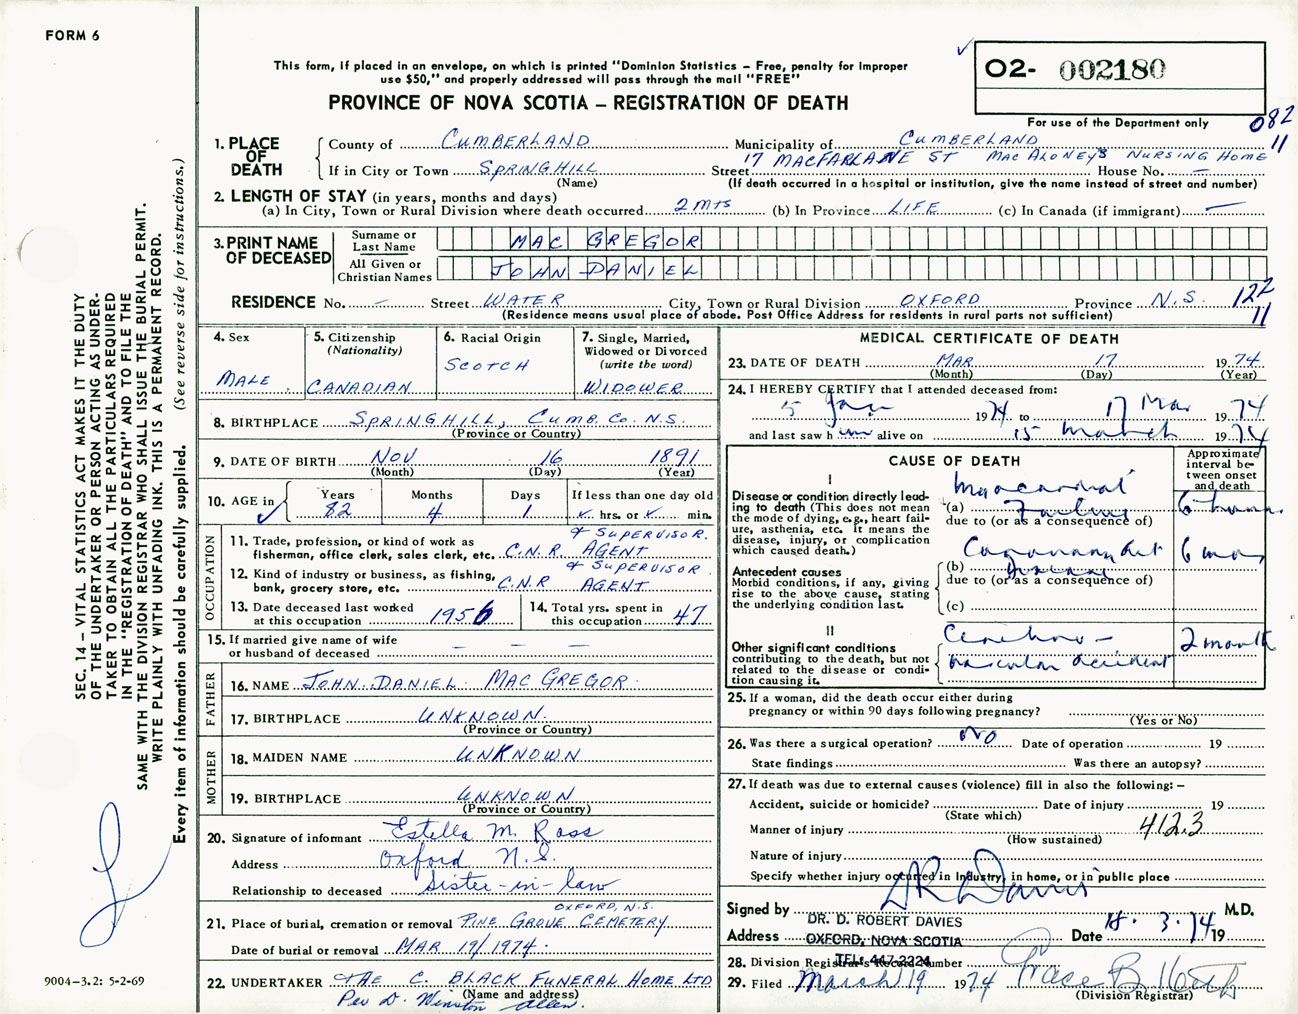 FORM 6
This form, if placed in an envelope, on which is printed "Dominion Statistics – Free, penalty for improper
use $50," and properly addressed will pass through the mail "FREE"
PROVINCE OF NOVA SCOTIA – REGISTRATION OF DEATH
02- 002180
For use of the Department only
082
11
1. PLACE OF DEATH
County of CUMBERLAND Municipality of CUMBERLAND
If in City or Town SPRINGHILL Street 17 MACFARLANE ST MACALONEY'S NURSING HOME House No. –
(Name) (If death occurred in a hospital or institution, give the name instead of street and number)
2. LENGTH OF STAY (in years, months and days)
(a) In City, Town or Rural Division where death occurred 2 MTS (b) In Province LIFE (c) In Canada (if immigrant) –
3. PRINT NAME OF DECEASED
Surname or Last Name MAC GREGOR
All Given or Christian Names JOHN DANIEL
RESIDENCE No. – Street WATER City, Town or Rural Division OXFORD Province N.S.
122
11
(Residence means usual place of abode. Post Office Address for residents in rural parts not sufficient)
4. Sex
MALE
5. Citizenship
(Nationality)
CANADIAN
6. Racial Origin
SCOTCH
7. Single, Married,
Widowed or Divorced
(write the word)
WIDOWER
8. BIRTHPLACE SPRINGHILL, CUMB. CO. N.S.
(Province or Country)
9. DATE OF BIRTH NOV 16 1891
(Month) (Day) (Year)
10. AGE in
Years Months Days If less than one day old
82 4 1 hrs. or min.
OCCUPATION
11. Trade, profession, or kind of work as
fisherman, office clerk, sales clerk, etc. C.N.R. AGENT & SUPERVISOR.
12. Kind of industry or business, as fishing,
bank, grocery store, etc. C.N.R AGENT & SUPERVISOR
13. Date deceased last worked
at this occupation 1956
14. Total yrs. spent in
this occupation 47
15. If married give name of wife
or husband of deceased – – –
FATHER
16. NAME JOHN DANIEL MAC GREGOR
17. BIRTHPLACE UNKNOWN.
(Province or Country)
MOTHER
18. MAIDEN NAME UNKNOWN
19. BIRTHPLACE UNKNOWN
(Province or Country)
20. Signature of informant Estella M. Ross
Address Oxford N.S.
Relationship to deceased Sister-in-law
21. Place of burial, cremation or removal PINE GROVE CEMETERY OXFORD, N.S.
Date of burial or removal MAR 19/1974.
22. UNDERTAKER THE C. BLACK FUNERAL HOME LTD
(Name and address)
Per D. Winston Allen.
MEDICAL CERTIFICATE OF DEATH
23. DATE OF DEATH MAR 17 1974
(Month) (Day) (Year)
24. I HEREBY CERTIFY that I attended deceased from:
5 Jan 1974 to 17 Mar 1974
and last saw him alive on 15 March 1974
CAUSE OF DEATH
Approximate interval between onset and death
I
Disease or condition directly leading to death (This does not mean the mode of dying, e.g., heart failure, asthenia, etc. It means the disease, injury, or complication which caused death.)
(a) Myocardial Failure 6 hours
due to (or as a consequence of)
Antecedent causes
Morbid conditions, if any, giving rise to the above cause, stating the underlying condition last.
(b) Coronary Art Disease 6 mos
due to (or as a consequence of)
(c)
II
Other significant conditions
contributing to the death, but not related to the disease or condition causing it.
Cerebro-vascular accident 2 month
25. If a woman, did the death occur either during
pregnancy or within 90 days following pregnancy?
(Yes or No)
26. Was there a surgical operation? No Date of operation 19
State findings Was there an autopsy?
27. If death was due to external causes (violence) fill in also the following: –
Accident, suicide or homicide? Date of injury 19
(State which)
Manner of injury 412.3
(How sustained)
Nature of injury
Specify whether injury occurred in industry, in home, or in public place
Signed by D R Davies M.D.
DR. D. ROBERT DAVIES
Address OXFORD, NOVA SCOTIA Date 18. 3. 74 19
TEL: 447-2224
28. Division Registrar's Record Number
29. Filed March 19 1974
(Division Registrar)
SEC. 14 – VITAL STATISTICS ACT MAKES IT THE DUTY
OF THE UNDERTAKER OR PERSON ACTING AS UNDER-
TAKER TO OBTAIN ALL THE PARTICULARS REQUIRED
IN THE "REGISTRATION OF DEATH" AND TO FILE THE
SAME WITH THE DIVISION REGISTRAR WHO SHALL ISSUE THE BURIAL PERMIT.
WRITE PLAINLY WITH UNFADING INK. THIS IS A PERMANENT RECORD.
Every item of information should be carefully supplied. (See reverse side for instructions.)
9004-3.2: 5-2-69